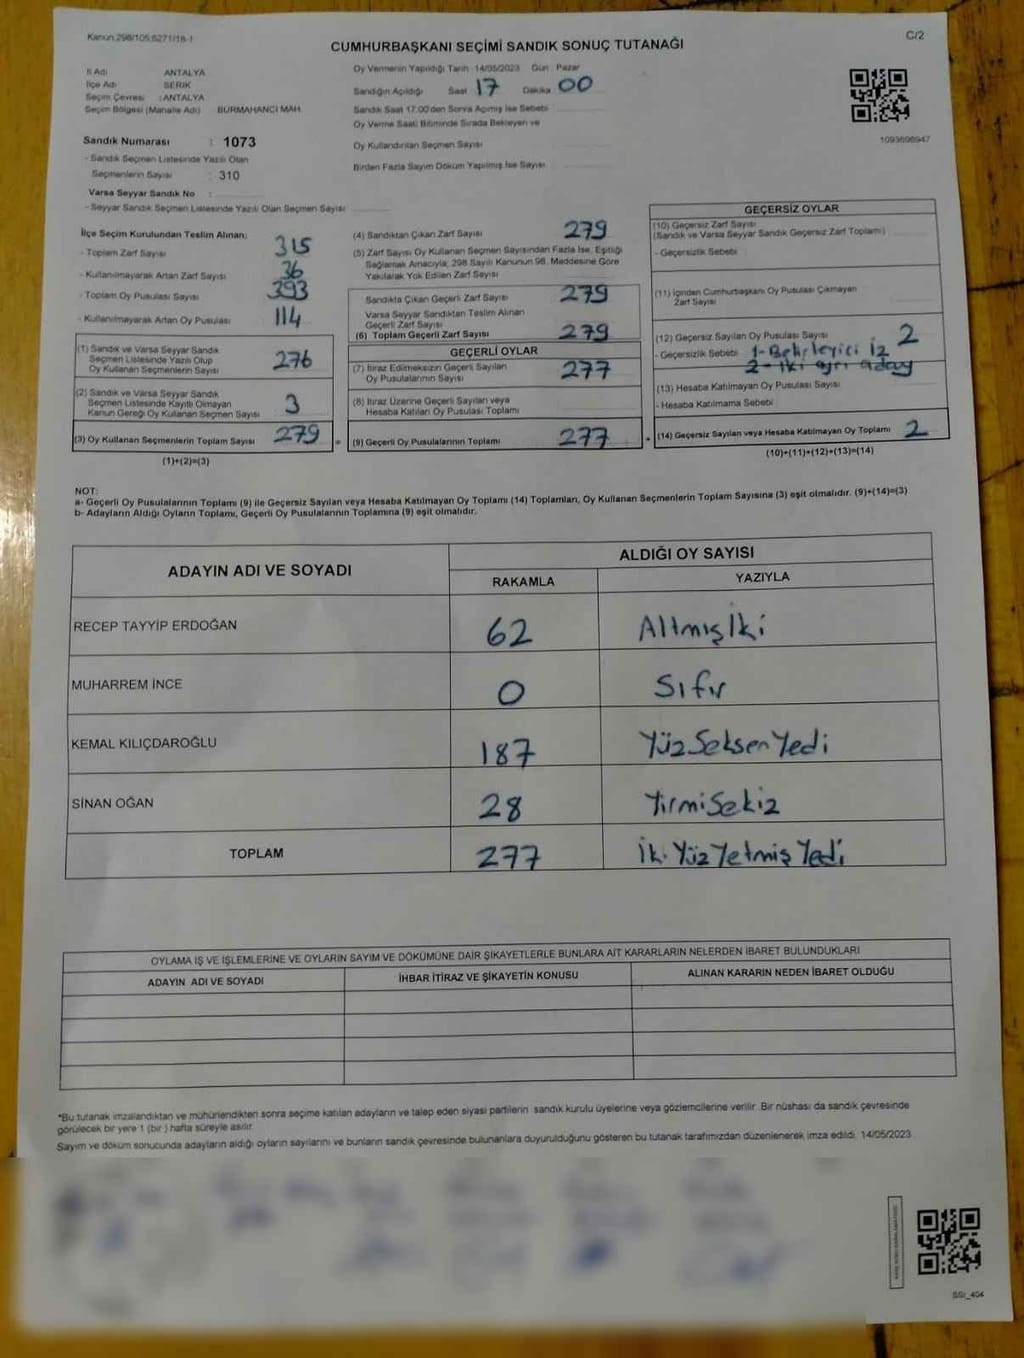 Kanun:298/105,6271/18-1
C/2
CUMHURBAŞKANI SEÇİMİ SANDIK SONUÇ TUTANAĞI
İl Adı ANTALYA
İlçe Adı SERİK
Seçim Çevresi : ANTALYA
Seçim Bölgesi (Mahalle Adı) BURMAHANCI MAH.
Sandık Numarası : 1073
- Sandık Seçmen Listesinde Yazılı Olan
Seçmenlerin Sayısı : 310
Varsa Seyyar Sandık No :
- Seyyar Sandık Seçmen Listesinde Yazılı Olan Seçmen Sayısı
Oy Vermenin Yapıldığı Tarih 14/05/2023 Gün Pazar
Sandığın Açıldığı Saat 17 Dakika 00
Sandık Saat 17:00'den Sonra Açılmış İse Sebebi
Oy Verme Saati Bitiminde Sırada Bekleyen ve
Oy Kullandırılan Seçmen Sayısı
Birden Fazla Sayım Döküm Yapılmış İse Sayısı
1093698947
İlçe Seçim Kurulundan Teslim Alınan;
- Toplam Zarf Sayısı 315
- Kullanılmayarak Artan Zarf Sayısı 36
- Toplam Oy Pusulası Sayısı 393
- Kullanılmayarak Artan Oy Pusulası 114
(1) Sandık ve Varsa Seyyar Sandık
Seçmen Listesinde Yazılı Olup
Oy Kullanan Seçmenlerin Sayısı 276
(2) Sandık ve Varsa Seyyar Sandık
Seçmen Listesinde Kayıtlı Olmayan
Kanun Gereği Oy Kullanan Seçmen Sayısı 3
(3) Oy Kullanan Seçmenlerin Toplam Sayısı 279 =
(1)+(2)=(3)
(4) Sandıktan Çıkan Zarf Sayısı 279
(5) Zarf Sayısı Oy Kullanan Seçmen Sayısından Fazla İse, Eşitliği
Sağlamak Amacıyla; 298 Sayılı Kanunun 98. Maddesine Göre
Yakılarak Yok Edilen Zarf Sayısı
Sandıkta Çıkan Geçerli Zarf Sayısı 279
Varsa Seyyar Sandıktan Teslim Alınan
Geçerli Zarf Sayısı
(6) Toplam Geçerli Zarf Sayısı 279
GEÇERLİ OYLAR
(7) İtiraz Edilmeksizin Geçerli Sayılan
Oy Pusulalarının Sayısı 277
(8) İtiraz Üzerine Geçerli Sayılan veya
Hesaba Katılan Oy Pusulası Toplamı
(9) Geçerli Oy Pusulalarının Toplamı 277 +
GEÇERSİZ OYLAR
(10) Geçersiz Zarf Sayısı
(Sandık ve Varsa Seyyar Sandık Geçersiz Zarf Toplamı)
- Geçersizlik Sebebi
(11) İçinden Cumhurbaşkanı Oy Pusulası Çıkmayan
Zarf Sayısı
(12) Geçersiz Sayılan Oy Pusulası Sayısı 2
- Geçersizlik Sebebi 1- Belirleyici iz
2- iki ayrı aday
(13) Hesaba Katılmayan Oy Pusulası Sayısı
- Hesaba Katılmama Sebebi
(14) Geçersiz Sayılan veya Hesaba Katılmayan Oy Toplamı 2
(10)+(11)+(12)+(13)=(14)
NOT:
a- Geçerli Oy Pusulalarının Toplamı (9) ile Geçersiz Sayılan veya Hesaba Katılmayan Oy Toplamı (14) Toplamları, Oy Kullanan Seçmenlerin Toplam Sayısına (3) eşit olmalıdır. (9)+(14)=(3)
b- Adayların Aldığı Oyların Toplamı, Geçerli Oy Pusulalarının Toplamına (9) eşit olmalıdır.
ADAYIN ADI VE SOYADI
ALDIĞI OY SAYISI
RAKAMLA YAZIYLA
RECEP TAYYİP ERDOĞAN 62 Altmışİki
MUHARREM İNCE 0 Sıfır
KEMAL KILIÇDAROĞLU 187 YüzSeksenYedi
SİNAN OĞAN 28 YirmiSekiz
TOPLAM 277 İkiYüzYetmişYedi
OYLAMA İŞ VE İŞLEMLERİNE VE OYLARIN SAYIM VE DÖKÜMÜNE DAİR ŞİKAYETLERLE BUNLARA AİT KARARLARIN NELERDEN İBARET BULUNDUKLARI
ADAYIN ADI VE SOYADI İHBAR İTİRAZ VE ŞİKAYETİN KONUSU ALINAN KARARIN NEDEN İBARET OLDUĞU
*Bu tutanak imzalandıktan ve mühürlendikten sonra seçime katılan adayların ve talep eden siyasi partilerin sandık kurulu üyelerine veya gözlemcilerine verilir. Bir nüshası da sandık çevresinde
görülecek bir yere 1 (bir) hafta süreyle asılır.
Sayım ve döküm sonucunda adayların aldığı oyların sayılarını ve bunların sandık çevresinde bulunanlara duyurulduğunu gösteren bu tutanak tarafımızdan düzenlenerek imza edildi. 14/05/2023
SSt_404